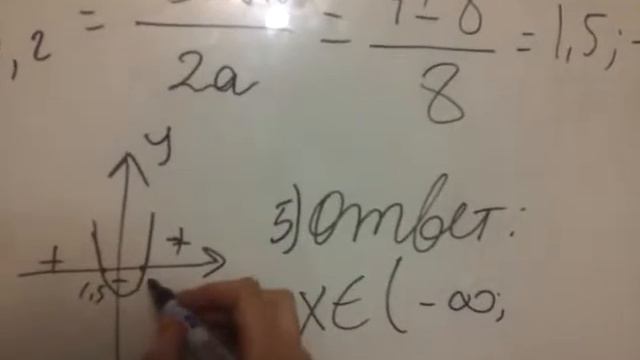 ,2 = / 2a = / 8 = 1,5;
y
+ +
1,5 -
5) Ответ:
x∈(-∞;